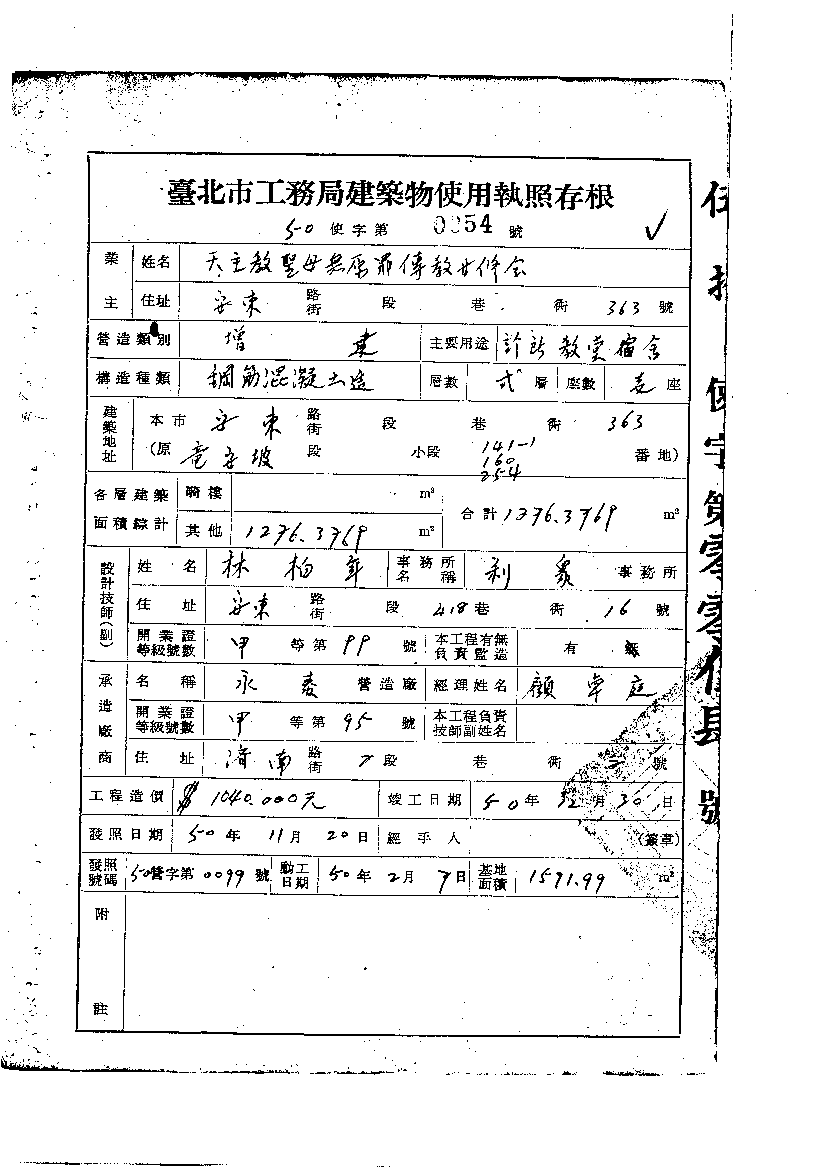 臺北市工務局建築物使用執照存根
50 使字第 0054 號
業主 姓名 天主教聖母無原罪傳教女修会
住址 安東 路街 段 巷 衖 363 號
營造類別 增建 主要用途 診所教堂宿舍
構造種類 鋼筋混凝土造 層數 弍層 座數 壱座
建築地址 本市 安東 路街 段 巷 衖 363
(原 竜安坡 段 小段 141-1 160 254 番地)
各層建築面積綜計 騎樓 m² 合計 1276.3769 m²
其他 1276.3769 m²
設計技師(副) 姓名 林柏年 事務所名稱 利眾 事務所
住址 安東 路街 段 418巷 衖 16 號
開業證等級號數 甲 等第 99 號 本工程有無負責監造 有 無
承造廠商 名稱 永 營造廠 經理姓名 顧卓庭
開業證等級號數 甲 等第 95 號 本工程負責技師副姓名
住址 濟南 路街 段 巷 衖 號
工程造價 $1040.000元 竣工日期 50年 月30日
發照日期 50年 11月 20日 經手人 (簽章)
發照號碼 50營字第0099號 動工日期 50年2月7日 基地面積 1591.99 m²
附註
伍 使字第零零 號